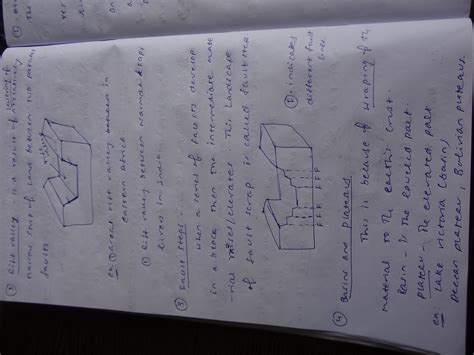 ② Rift valley - is a result of sinking of
narrow strip of land between two parallel
faults
ex: ① Great rift valley between in
eastern africa
② Rift valley between narmada & tapi
rivers in India.
③ Fault steps -
when a series of faults develop
in a block than the intermediate mass
may raised/elevates. This landscape
of fault scrap is called fault step.
F F F F F F
① - indicates
different fault
lines.
④ Basins and plateaus
This is because of wraping of the
material to the earth's crust.
Basin - is the lowered part.
plateau - The elevated part
ex: Lake victoria (basin)
Deccan plateau, Bolivian plateaus.